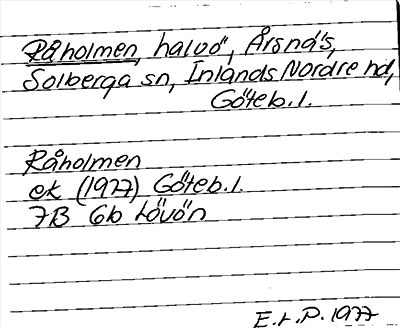 Råholmen, halvö, Årsnäs,
Solberga sn, Inlands Nordre hd,
Göteb. l.
Råholmen
ek (1977) Göteb. l.
7B 6b Lövön
E.L.P. 1977